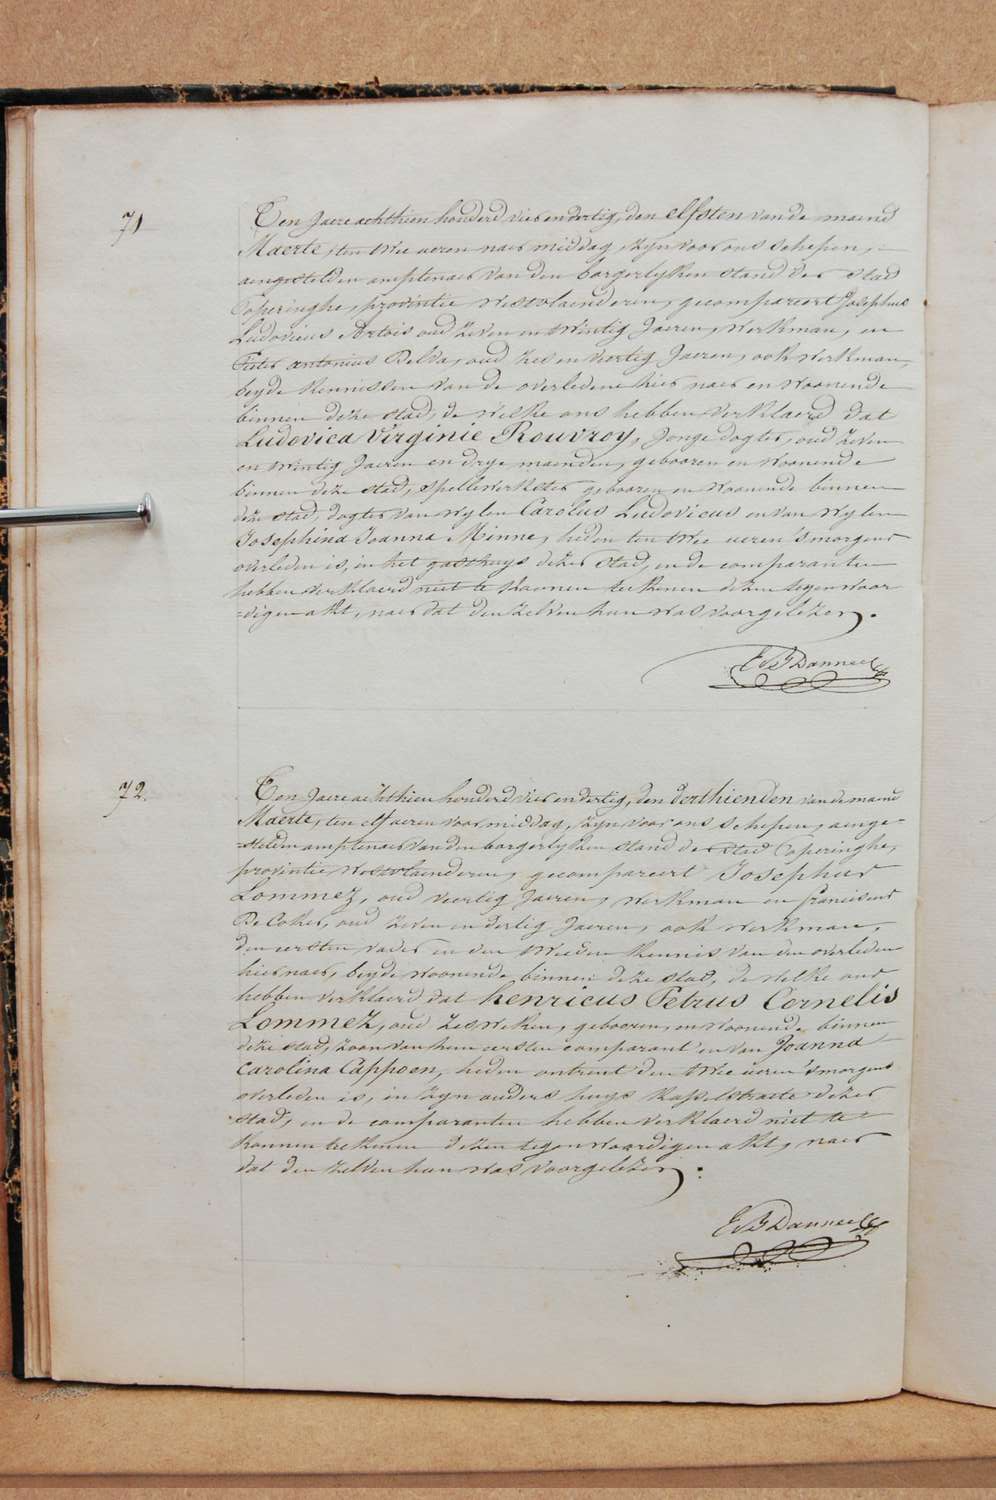 71
Ten Jaere achthien honderd vier en dertig, den elfsten van de maend
Maerte, ten twee ueren naer middag, zyn voor ons schepen,
aengestelden amptenaer van den borgerlyken stand der stad
Poperinghe, provintie westvlaenderen, gecompareert Josephus
Ludovicus Artois oud zeven en twintig Jaeren, werkman, en
Pieter antonius Delva, oud zes en veertig Jaeren, ook werkman,
beyde kennissen van de overledene hier naer en woonende
binnen deze stad, de welke ons hebben verklaerd dat
Ludovica Virginie Rouvroy, Jonge dogter, oud zeven
en twintig Jaeren en drye maenden, gebooren en woonende
binnen deze stad, spellewerkster gebooren en woonende binnen
deze stad, dogter van wylen Carolus Ludovicus en van wylen
Josephina Joanna Minne, heden ten twee ueren 's morgens
overleden is, in het gasthuys dezer stad, en de comparanten
hebben verklaerd niet te konnen teekenen dezen tegenwoor-
=digen akt, naer dat den zelven hun was voorgelezen.
E B Danneel
72.
Ten Jaere achthien honderd vier en dertig, den derthienden van de maend
Maerte, ten elf ueren voor middag, zyn voor ons schepen, aenge-
=stelden amptenaer van den borgerlyken stand der stad Poperinghe,
provintie westvlaenderen, gecompareert Josephus
Lommez, oud veertig Jaeren, werkman en franciscus
De Coker, oud zeven en dertig Jaeren, ook werkman,
den eersten vader en den tweeden kennis van den overleden
hier naer, beyde woonende binnen deze stad, de welke ons
hebben verklaerd dat henricus Petrus Cornelis
Lommez, oud zes weken, gebooren, en woonende binnen
deze stad, zoon van hem eersten comparant en van Joanna
Carolina Cappoen, heden ontrent den twee ueren 's morgens
overleden is, in zyn ouders huys Kasselstraete dezer
stad, en de comparanten hebben verklaerd niet te
konnen teekenen dezen tegenwoordigen akt, naer
dat den zelven hun was voorgelezen.
E B Danneel